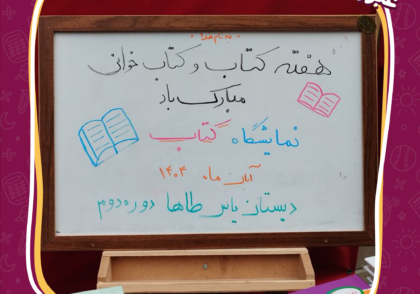 به نام خدا
هفته کتاب و کتاب خوانی
مبارک باد
نمایشگاه کتاب
آبان ماه ۱۴۰۴
دبستان یاس طاها دوره دوم